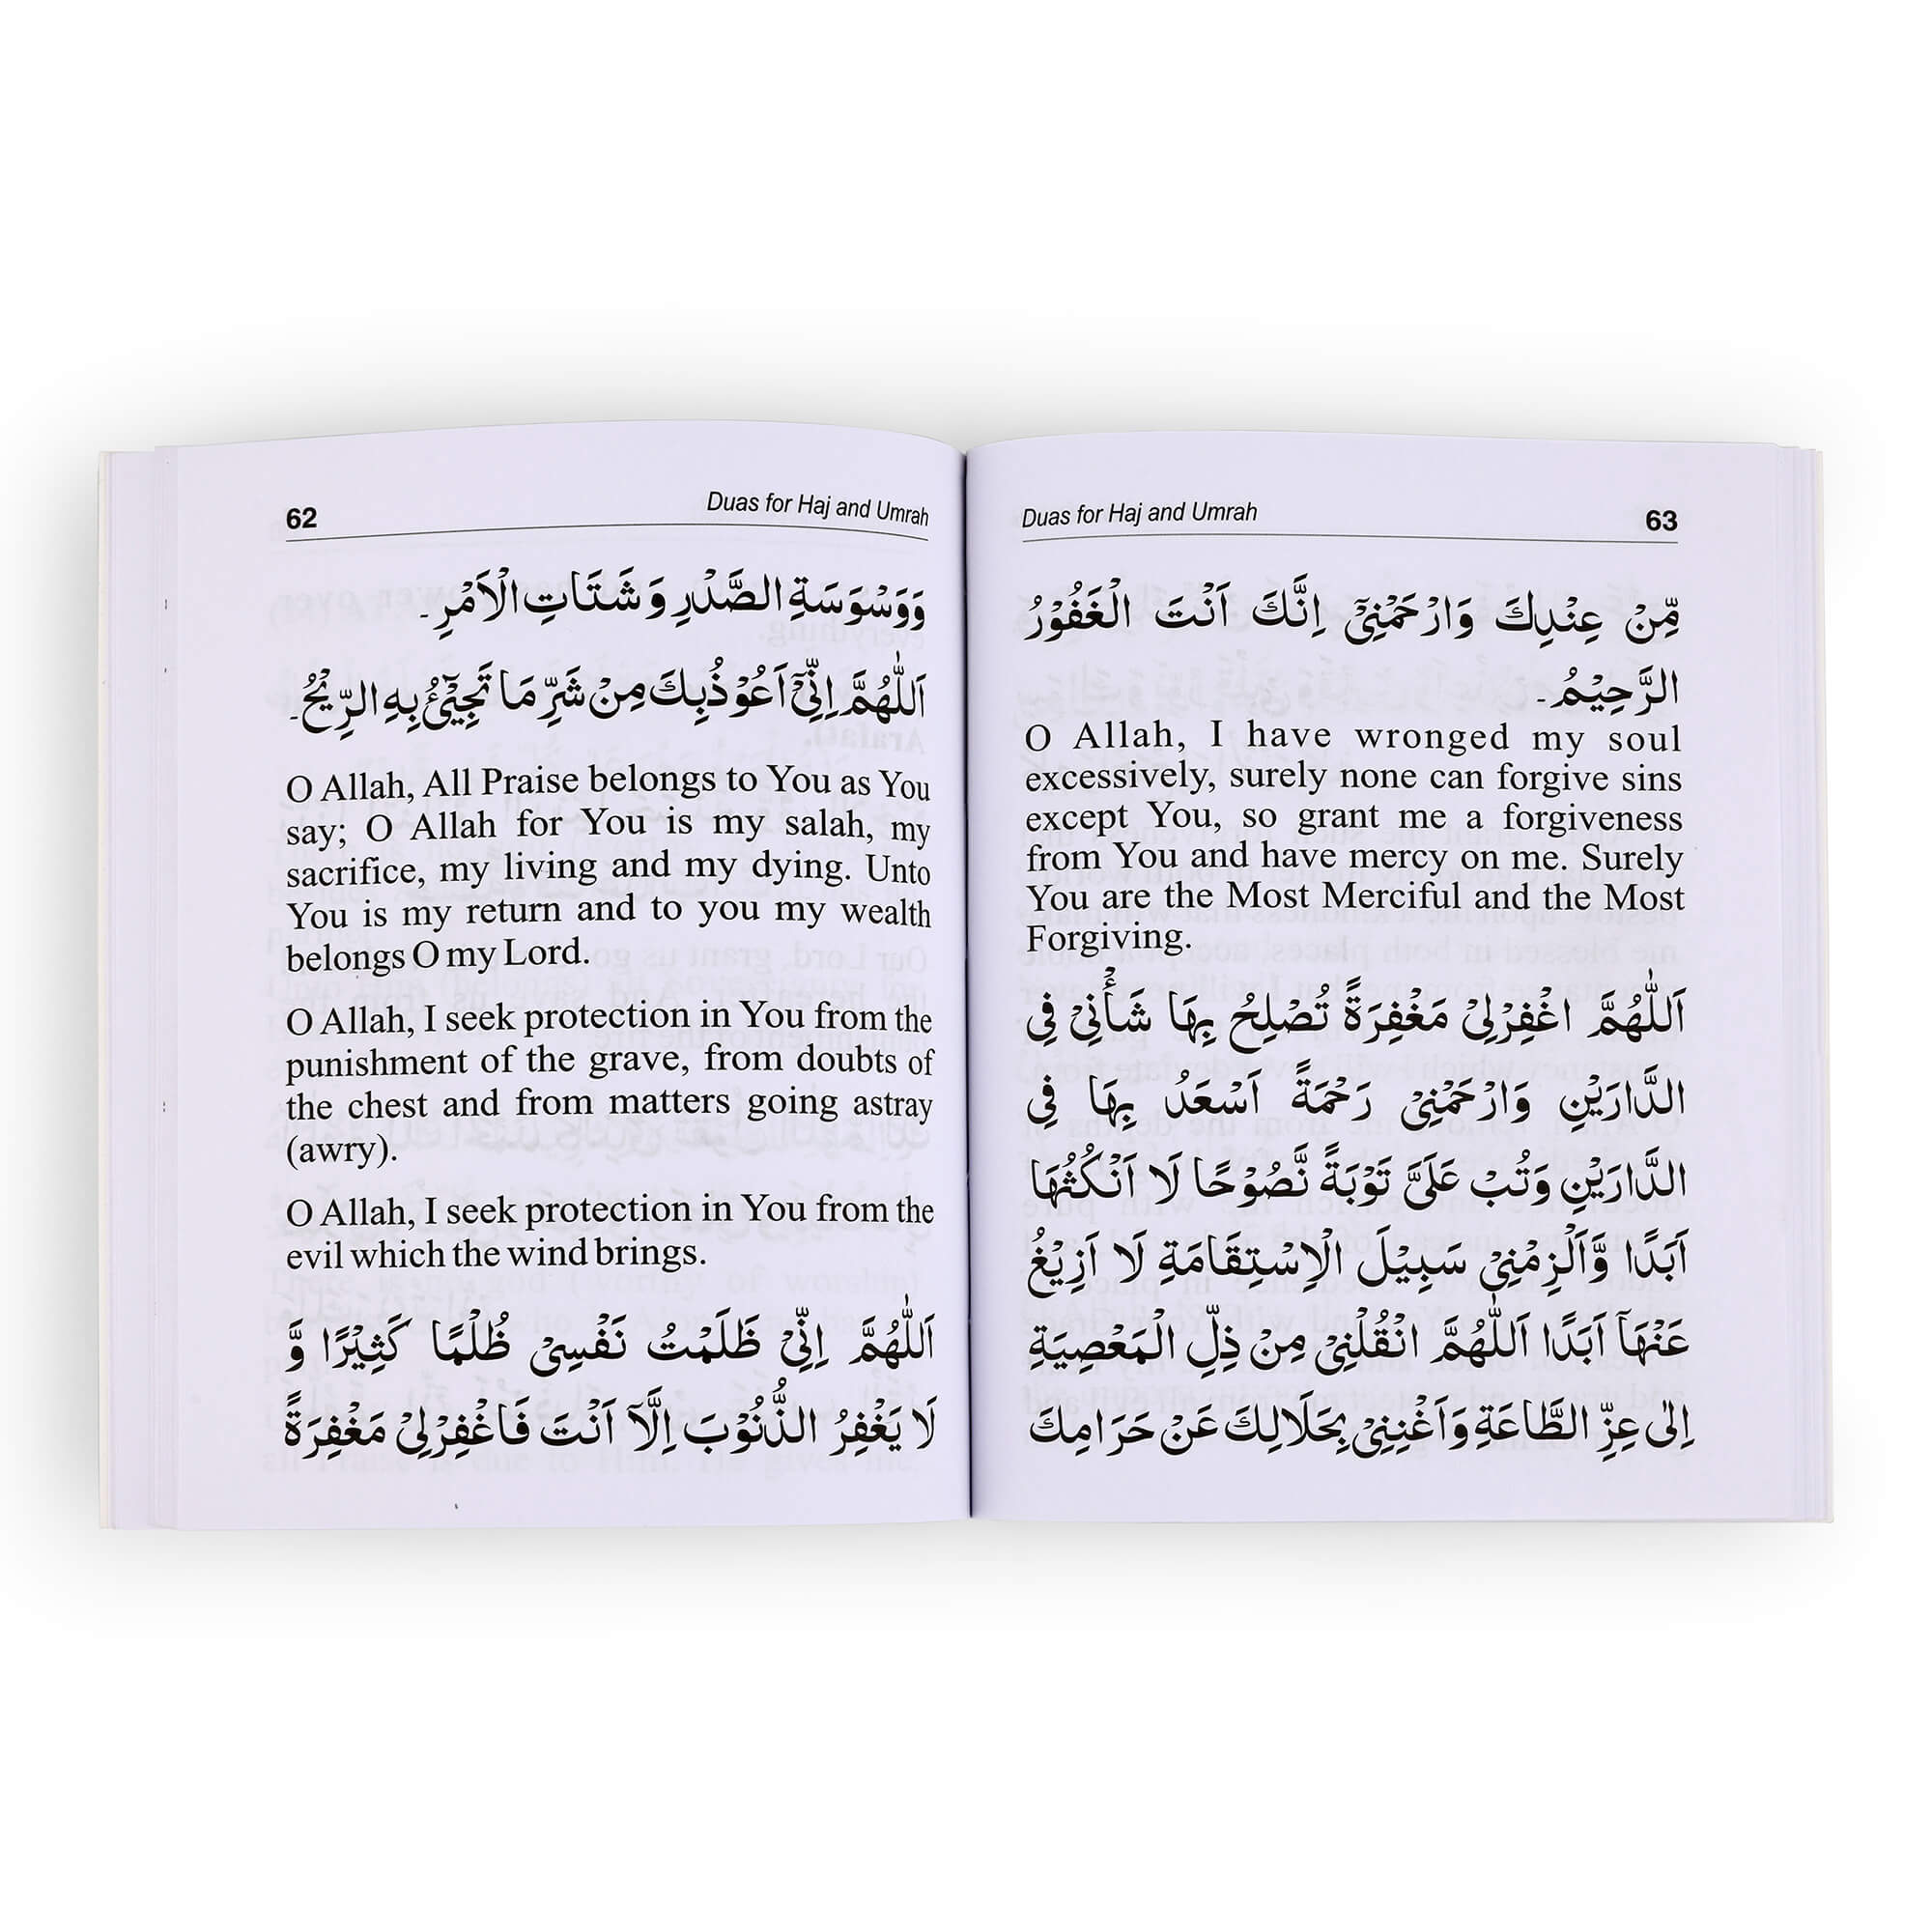 62
Duas for Haj and Umrah
وَوَسْوَسَةِ الصَّدْرِ وَشَتَاتِ الْاَمْرِ۔
اَللّٰهُمَّ اِنِّيْٓ اَعُوْذُبِكَ مِنْ شَرِّ مَا تَجِيْٓئُ بِهِ الرِّيْحُ۔
O Allah, All Praise belongs to You as You
say; O Allah for You is my salah, my
sacrifice, my living and my dying. Unto
You is my return and to you my wealth
belongs O my Lord.
O Allah, I seek protection in You from the
punishment of the grave, from doubts of
the chest and from matters going astray
(awry).
O Allah, I seek protection in You from the
evil which the wind brings.
اَللّٰهُمَّ اِنِّيْ ظَلَمْتُ نَفْسِيْ ظُلْمًا كَثِيْرًا وَّ
لَا يَغْفِرُ الذُّنُوْبَ اِلَّآ اَنْتَ فَاغْفِرْلِيْ مَغْفِرَةً
Duas for Haj and Umrah
63
مِّنْ عِنْدِكَ وَارْحَمْنِيْٓ اِنَّكَ اَنْتَ الْغَفُوْرُ
الرَّحِيْمُ۔
O Allah, I have wronged my soul
excessively, surely none can forgive sins
except You, so grant me a forgiveness
from You and have mercy on me. Surely
You are the Most Merciful and the Most
Forgiving.
اَللّٰهُمَّ اغْفِرْلِيْ مَغْفِرَةً تُصْلِحُ بِهَا شَأْنِيْ فِي
الدَّارَيْنِ وَارْحَمْنِيْ رَحْمَةً اَسْعَدُ بِهَا فِي
الدَّارَيْنِ وَتُبْ عَلَيَّ تَوْبَةً نَّصُوْحًا لَا اَنْكُثُهَا
اَبَدًا وَّاَلْزِمْنِيْ سَبِيْلَ الْاِسْتِقَامَةِ لَا اَزِيْغُ
عَنْهَآ اَبَدًا اَللّٰهُمَّ انْقُلْنِيْ مِنْ ذِلِّ الْمَعْصِيَةِ
اِلٰى عِزِّ الطَّاعَةِ وَاَغْنِنِيْ بِحَلَالِكَ عَنْ حَرَامِكَ